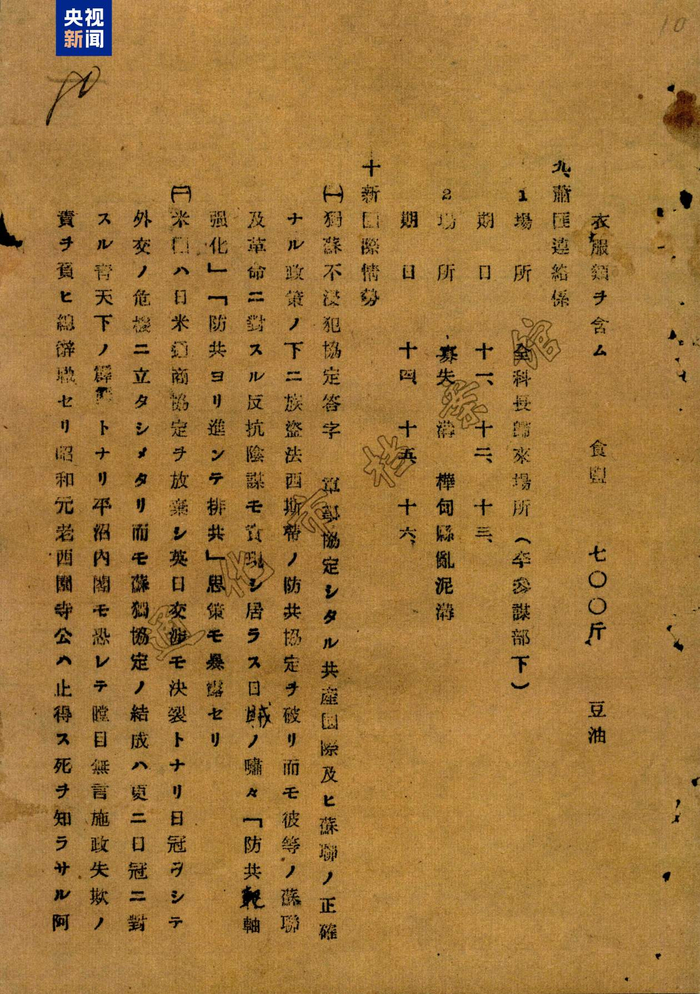 央视
新闻
10
衣服類ヲ含ム 食塩 七〇〇斤 豆油
九、蕭匪連絡係
1 場所 金科長歸來場所（辛參謀部下）
期日 十一、十二、十三、
2 場所 寡失溝 樺甸縣亂泥溝
期日 十四、十五、十六、
十 新国際情勢
(一)獨蘇不浸犯協定答字 軍事協定シタル共産国際及ヒ蘇聯ノ正確
ナル政策ノ下ニ族盗法西斯蒂ノ防共協定ヲ破リ而モ彼等ノ蘇聯
及革命ニ對スル反抗陰謀モ實現シ居ラス日賊ノ嘯々「防共軸
强化」「防共ヨリ進ンテ排共」思策モ暴露セリ
(二)米国ハ日米通商協定ヲ放棄シ英日交渉モ決裂トナリ日冠ヲシテ
外交ノ危機ニ立タシメタリ而モ蘇獨協定ノ結成ハ更ニ日冠ニ對
スル青天下ノ霹靂トナリ平沼内閣モ恐レテ瞠目無言施政失欺ノ
責ヲ負ヒ總辭職セリ昭和元老西園寺公ハ止得ス死ヲ知ラサル阿
通化市档案馆